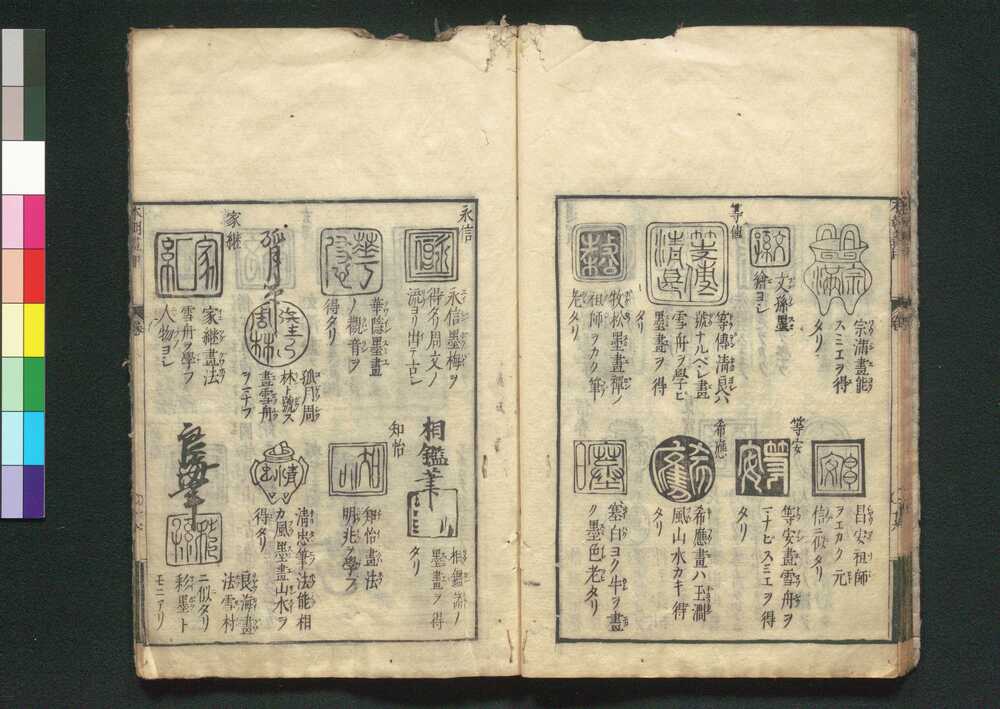 宗滿畫能
スミエヲ得
タリ
文孫墨
繪ヨシ
等傳
等傳清良ハ
號ナルベシ畫
雪舟ヲ學ヒ
墨畫ヲ得
タリ
牧松墨畫禪ノ
祖師ヲカク筆
先タリ
昌安祖師
ヲエカク元
信ニ似タリ
等安
等安畫雪舟ヲ
マナビスミエヲ得
タリ
希應
希應畫ハ玉澗
風山水カキ得
タリ
塞白ヨク牛ヲ畫
ク墨色老タリ
永信
永信墨梅ヲ
得タリ周文ノ
流ヨリ出テ古シ
華隱墨畫
ノ觀音ヲ
得タリ
孤月周
林ト號ス
畫雪舟
ヲマナブ
家継
家継畫法
雪舟ヲ學フ
人物ヨシ
相鑑筆
墨畫ヲ得
タリ
知怡
知怡畫法
明兆ヲ學フ
清忠筆法能相
カ風墨畫山水ヲ
得タリ
良海筆
良海畫
法雪村
ニ似タリ
彩墨ト
モニアリ